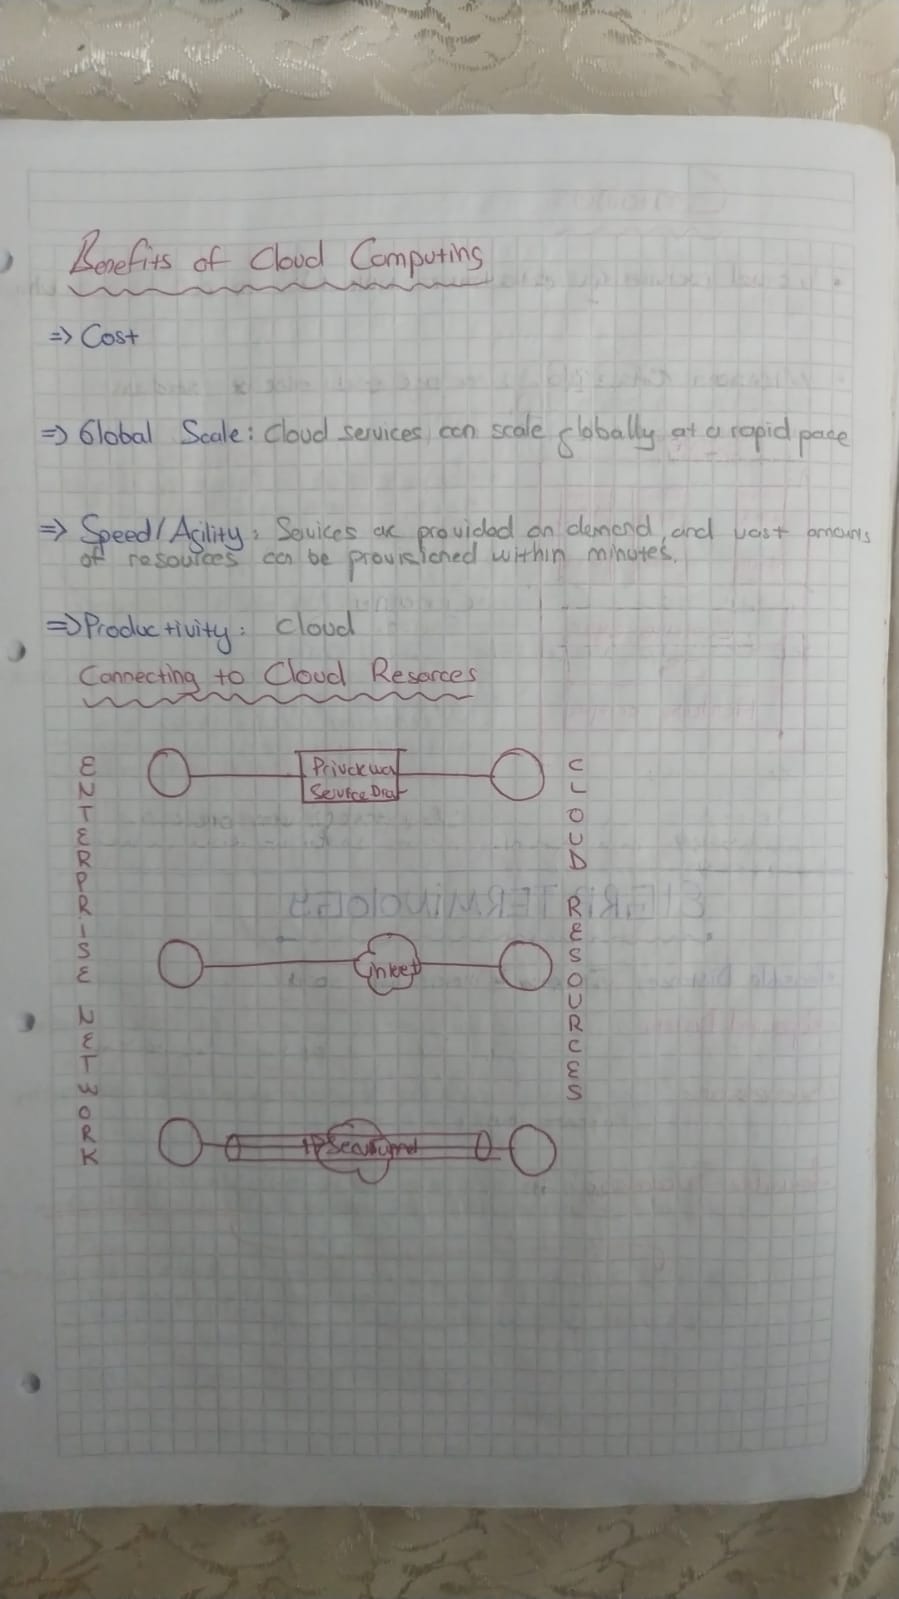 Benefits of Cloud Computing
=> Cost
=> Global Scale: Cloud services can scale globally at a rapid pace
=> Speed/Agility: Sevices are provided on demand, and vast amouns
of resources can be provisioned within minutes.
=> Productivity: Cloud
Connecting to Cloud Resorces
ENTERPRISE NETWORK
Service
CLOUD RESOURCES
IPSec
EIGRP TERMINOLOGY